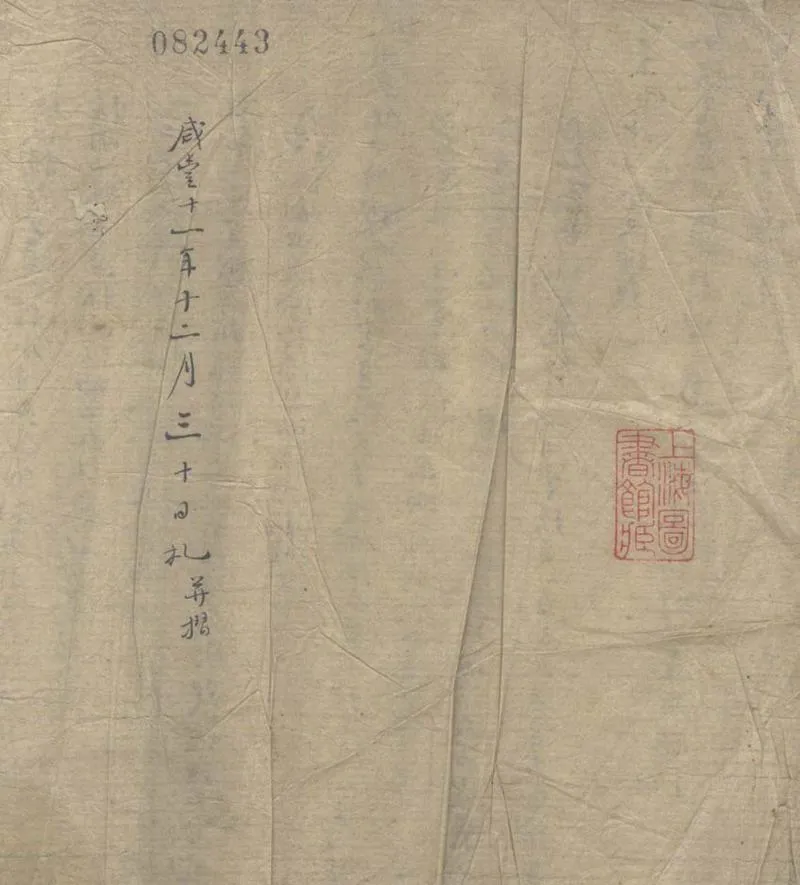 082443
咸豐十一年十二月三十日札并摺
上海圖
書館臧